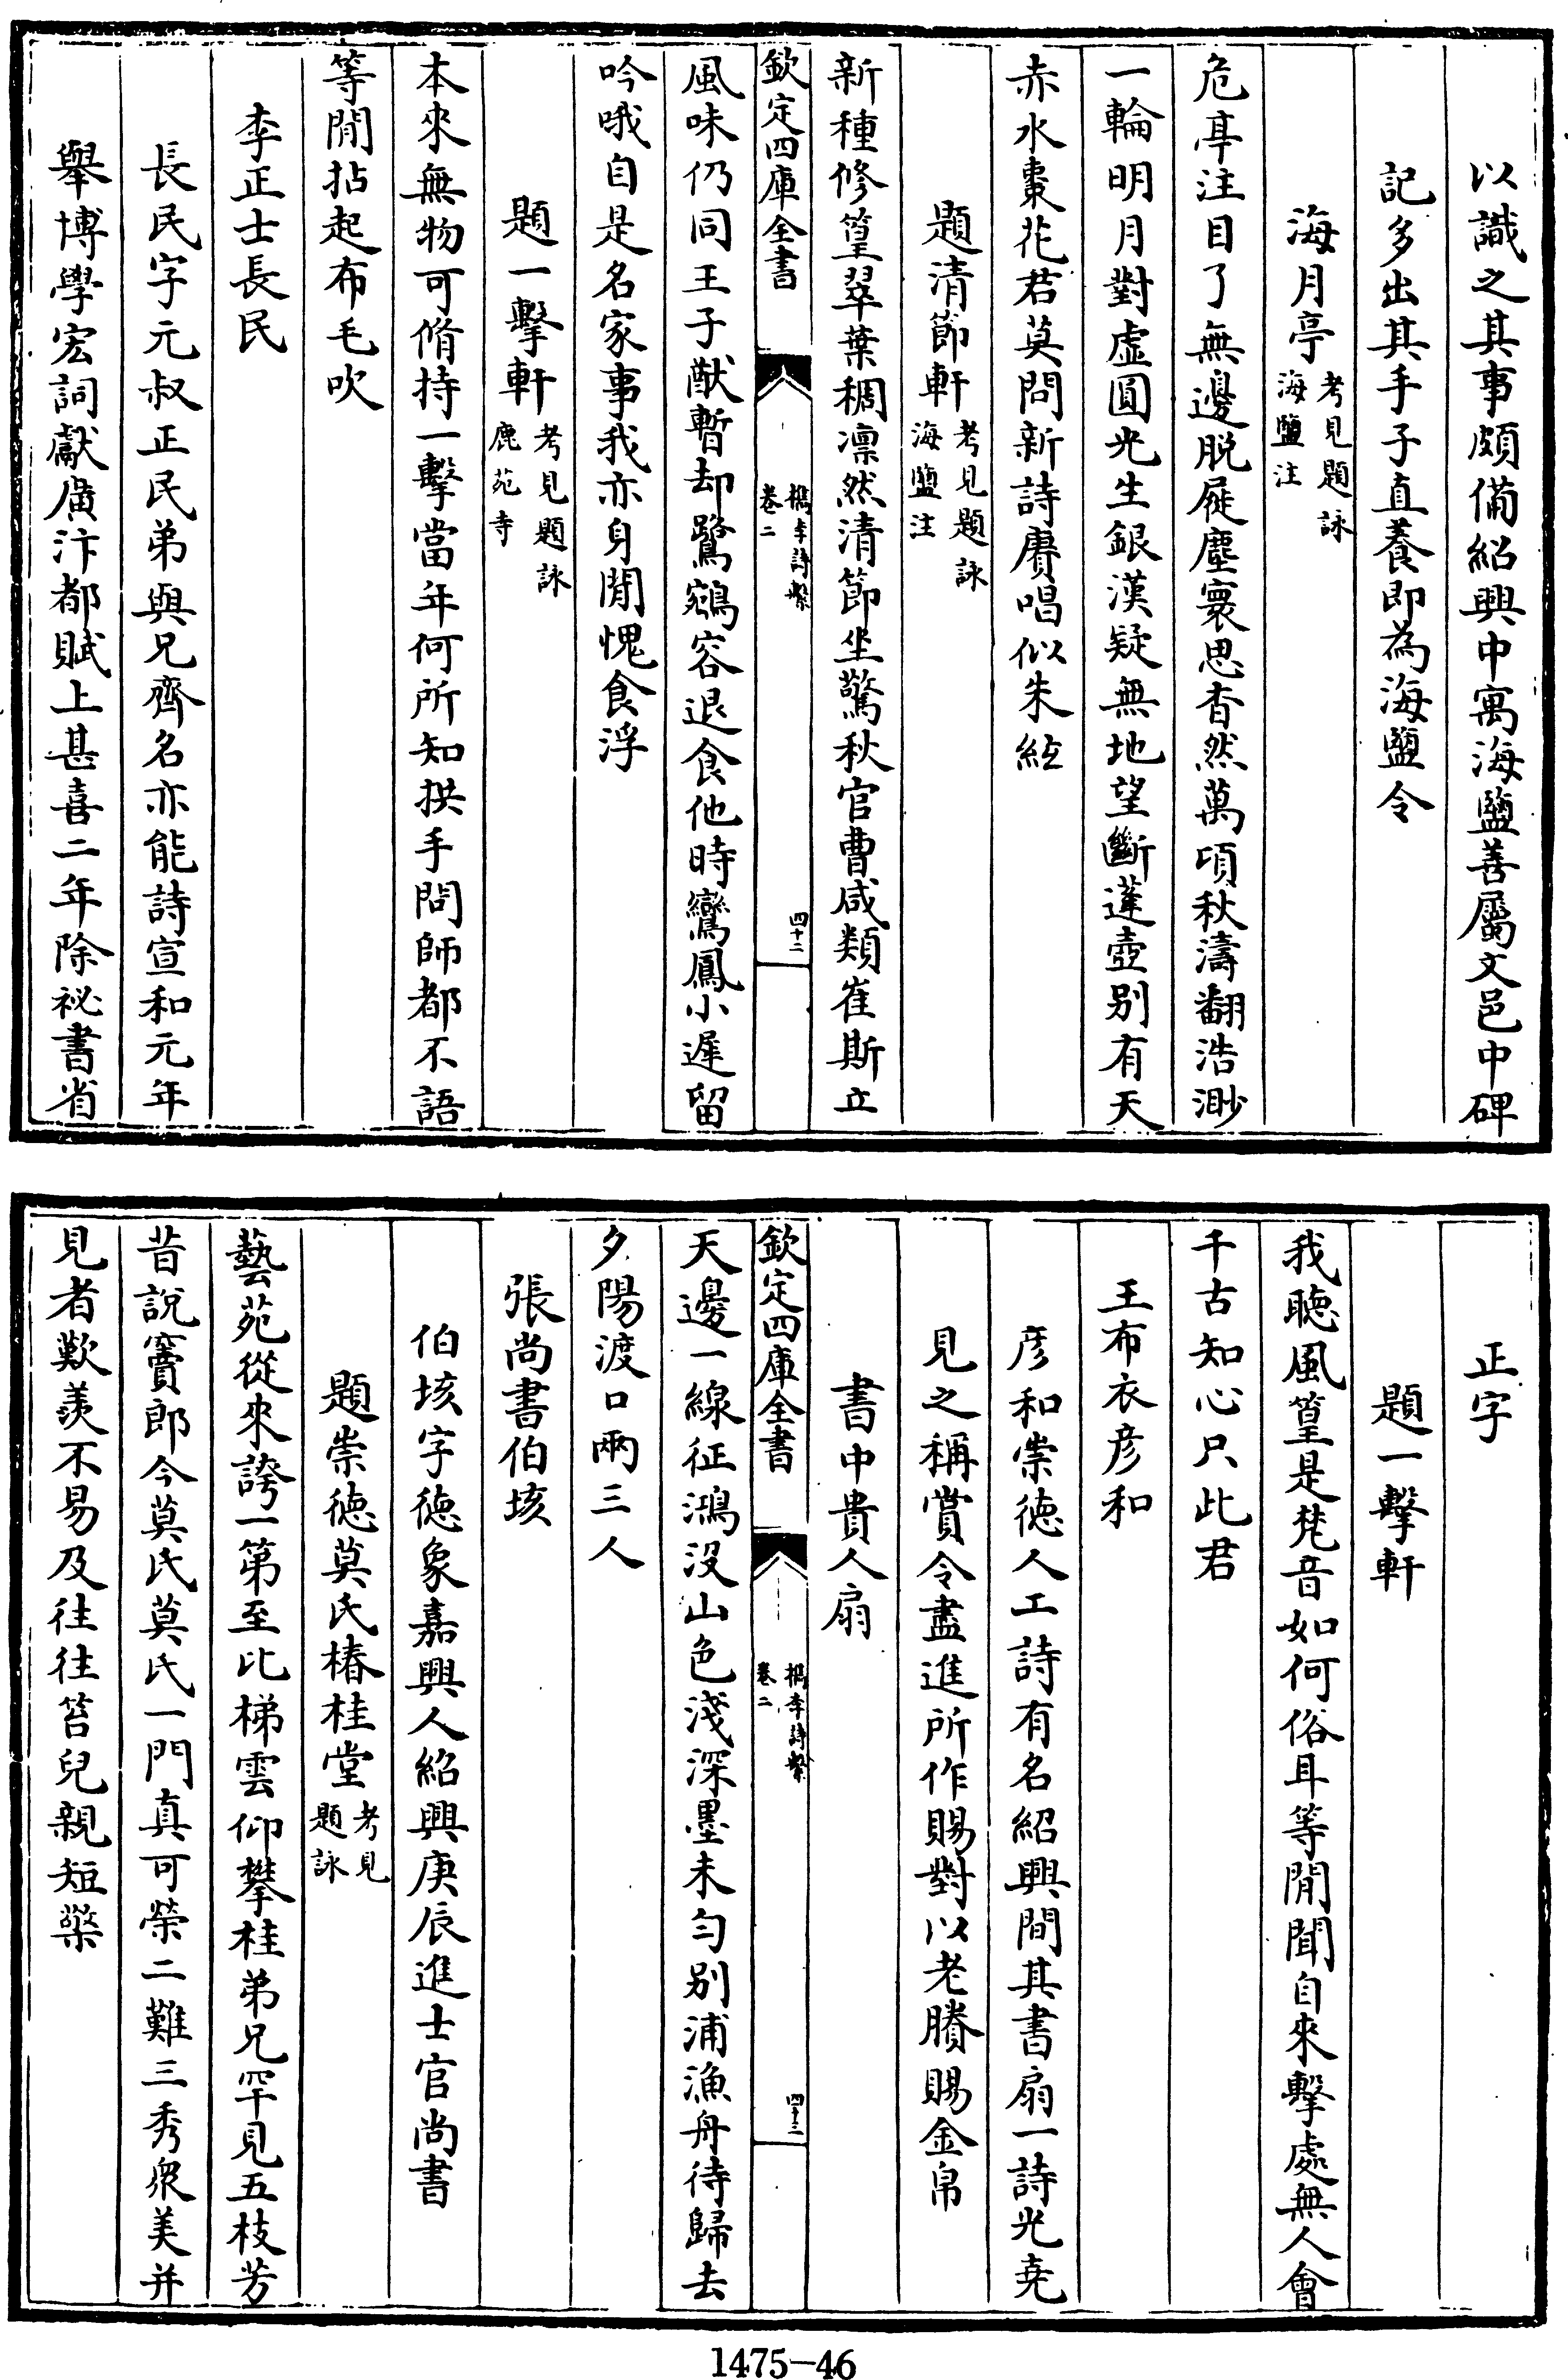 以識之其事頗備紹興中寓海鹽善屬文邑中碑
記多出其手子直養即為海鹽令
海月亭考見題詠海鹽注
危亭注目了無邊脱屣塵寰思杳然萬頃秋濤翻浩渺
一輪明月對虛圓光生銀漢疑無地望斷蓬壺别有天
赤水棗花君莫問新詩賡唱似朱絃
題清節軒考見題詠海鹽注
新種修篁翠葉稠凛然清節坐驚秋官曹咸類崔斯立
欽定四庫全書
檇李詩繫
卷二
四十二
風味仍同王子猷暫却鷺鵷容退食他時鸞鳳小遲留
吟哦自是名家事我亦身閒愧食浮
題一擊軒考見題詠鹿苑寺
本來無物可脩持一擊當年何所知拱手問師都不語
等閒拈起布毛吹
李正士長民
長民字元叔正民弟與兄齊名亦能詩宣和元年
舉博學宏詞獻廣汴都賦上甚喜二年除祕書省
正字
題一擊軒
我聽風篁是梵音如何俗耳等閒聞自來擊處無人會
千古知心只此君
王布衣彦和
彦和崇徳人工詩有名紹興間其書扇一詩光堯
見之稱賞令盡進所作賜對以老賸賜金帛
書中貴人扇
欽定四庫全書
檇李詩繫
卷二
四十三
天邊一線征鴻没山色淺深墨未勻别浦漁舟待歸去
夕陽渡口兩三人
張尚書伯垓
伯垓字徳象嘉興人紹興庚辰進士官尚書
題崇徳莫氏椿桂堂考見題詠
藝苑從來誇一第至比梯雲仰攀桂弟兄罕見五枝芳
昔説竇郎今莫氏莫氏一門真可榮二難三秀衆美并
見者歎羨不易及往往笞兒親短檠
1475-46